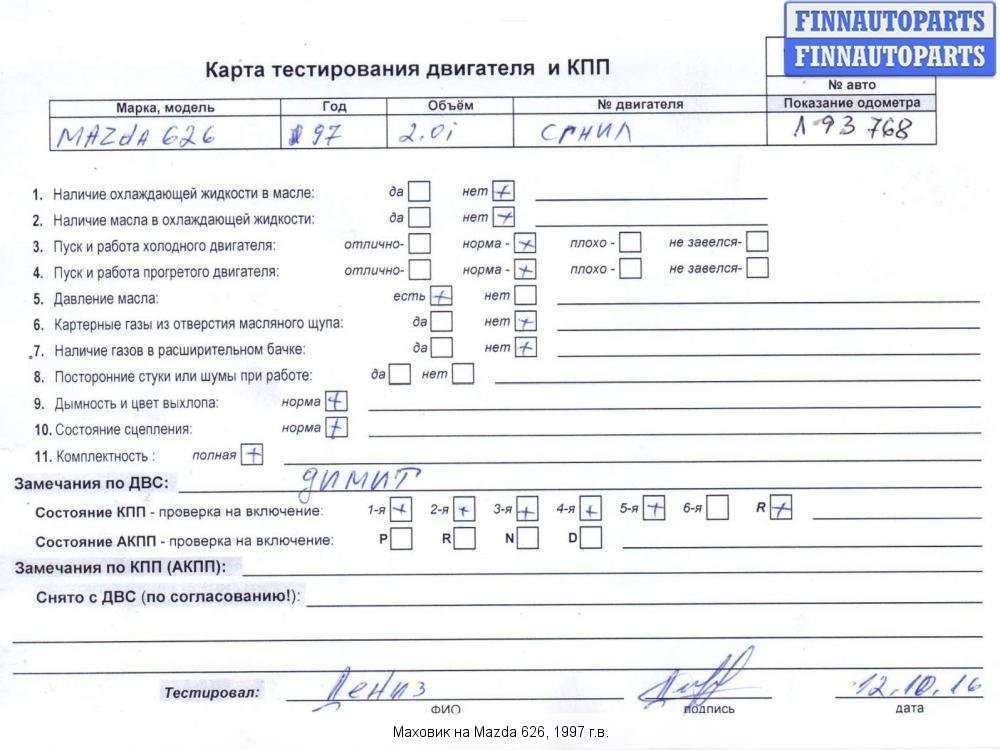 FINNAUTOPARTS
FINNAUTOPARTS
Карта тестирования двигателя и КПП
№ авто
Марка, модель Год Объём № двигателя Показание одометра
MAZda 626 97 2.0i 193 768
1. Наличие охлаждающей жидкости в масле: да нет +
2. Наличие масла в охлаждающей жидкости: да нет +
3. Пуск и работа холодного двигателя: отлично- норма - + плохо - не завелся-
4. Пуск и работа прогретого двигателя: отлично- норма - + плохо - не завелся-
5. Давление масла: есть + нет
6. Картерные газы из отверстия масляного щупа: да нет +
7. Наличие газов в расширительном бачке: да нет +
8. Посторонние стуки или шумы при работе: да нет
9. Дымность и цвет выхлопа: норма +
10. Состояние сцепления: норма +
11. Комплектность : полная +
Замечания по ДВС:
Состояние КПП - проверка на включение: 1-я + 2-я + 3-я + 4-я + 5-я + 6-я R +
Состояние АКПП - проверка на включение: P R N D
Замечания по КПП (АКПП):
Снято с ДВС (по согласованию!):
Тестировал: Дениз 12.10.16
ФИО подпись дата
Маховик на Mazda 626, 1997 г.в.